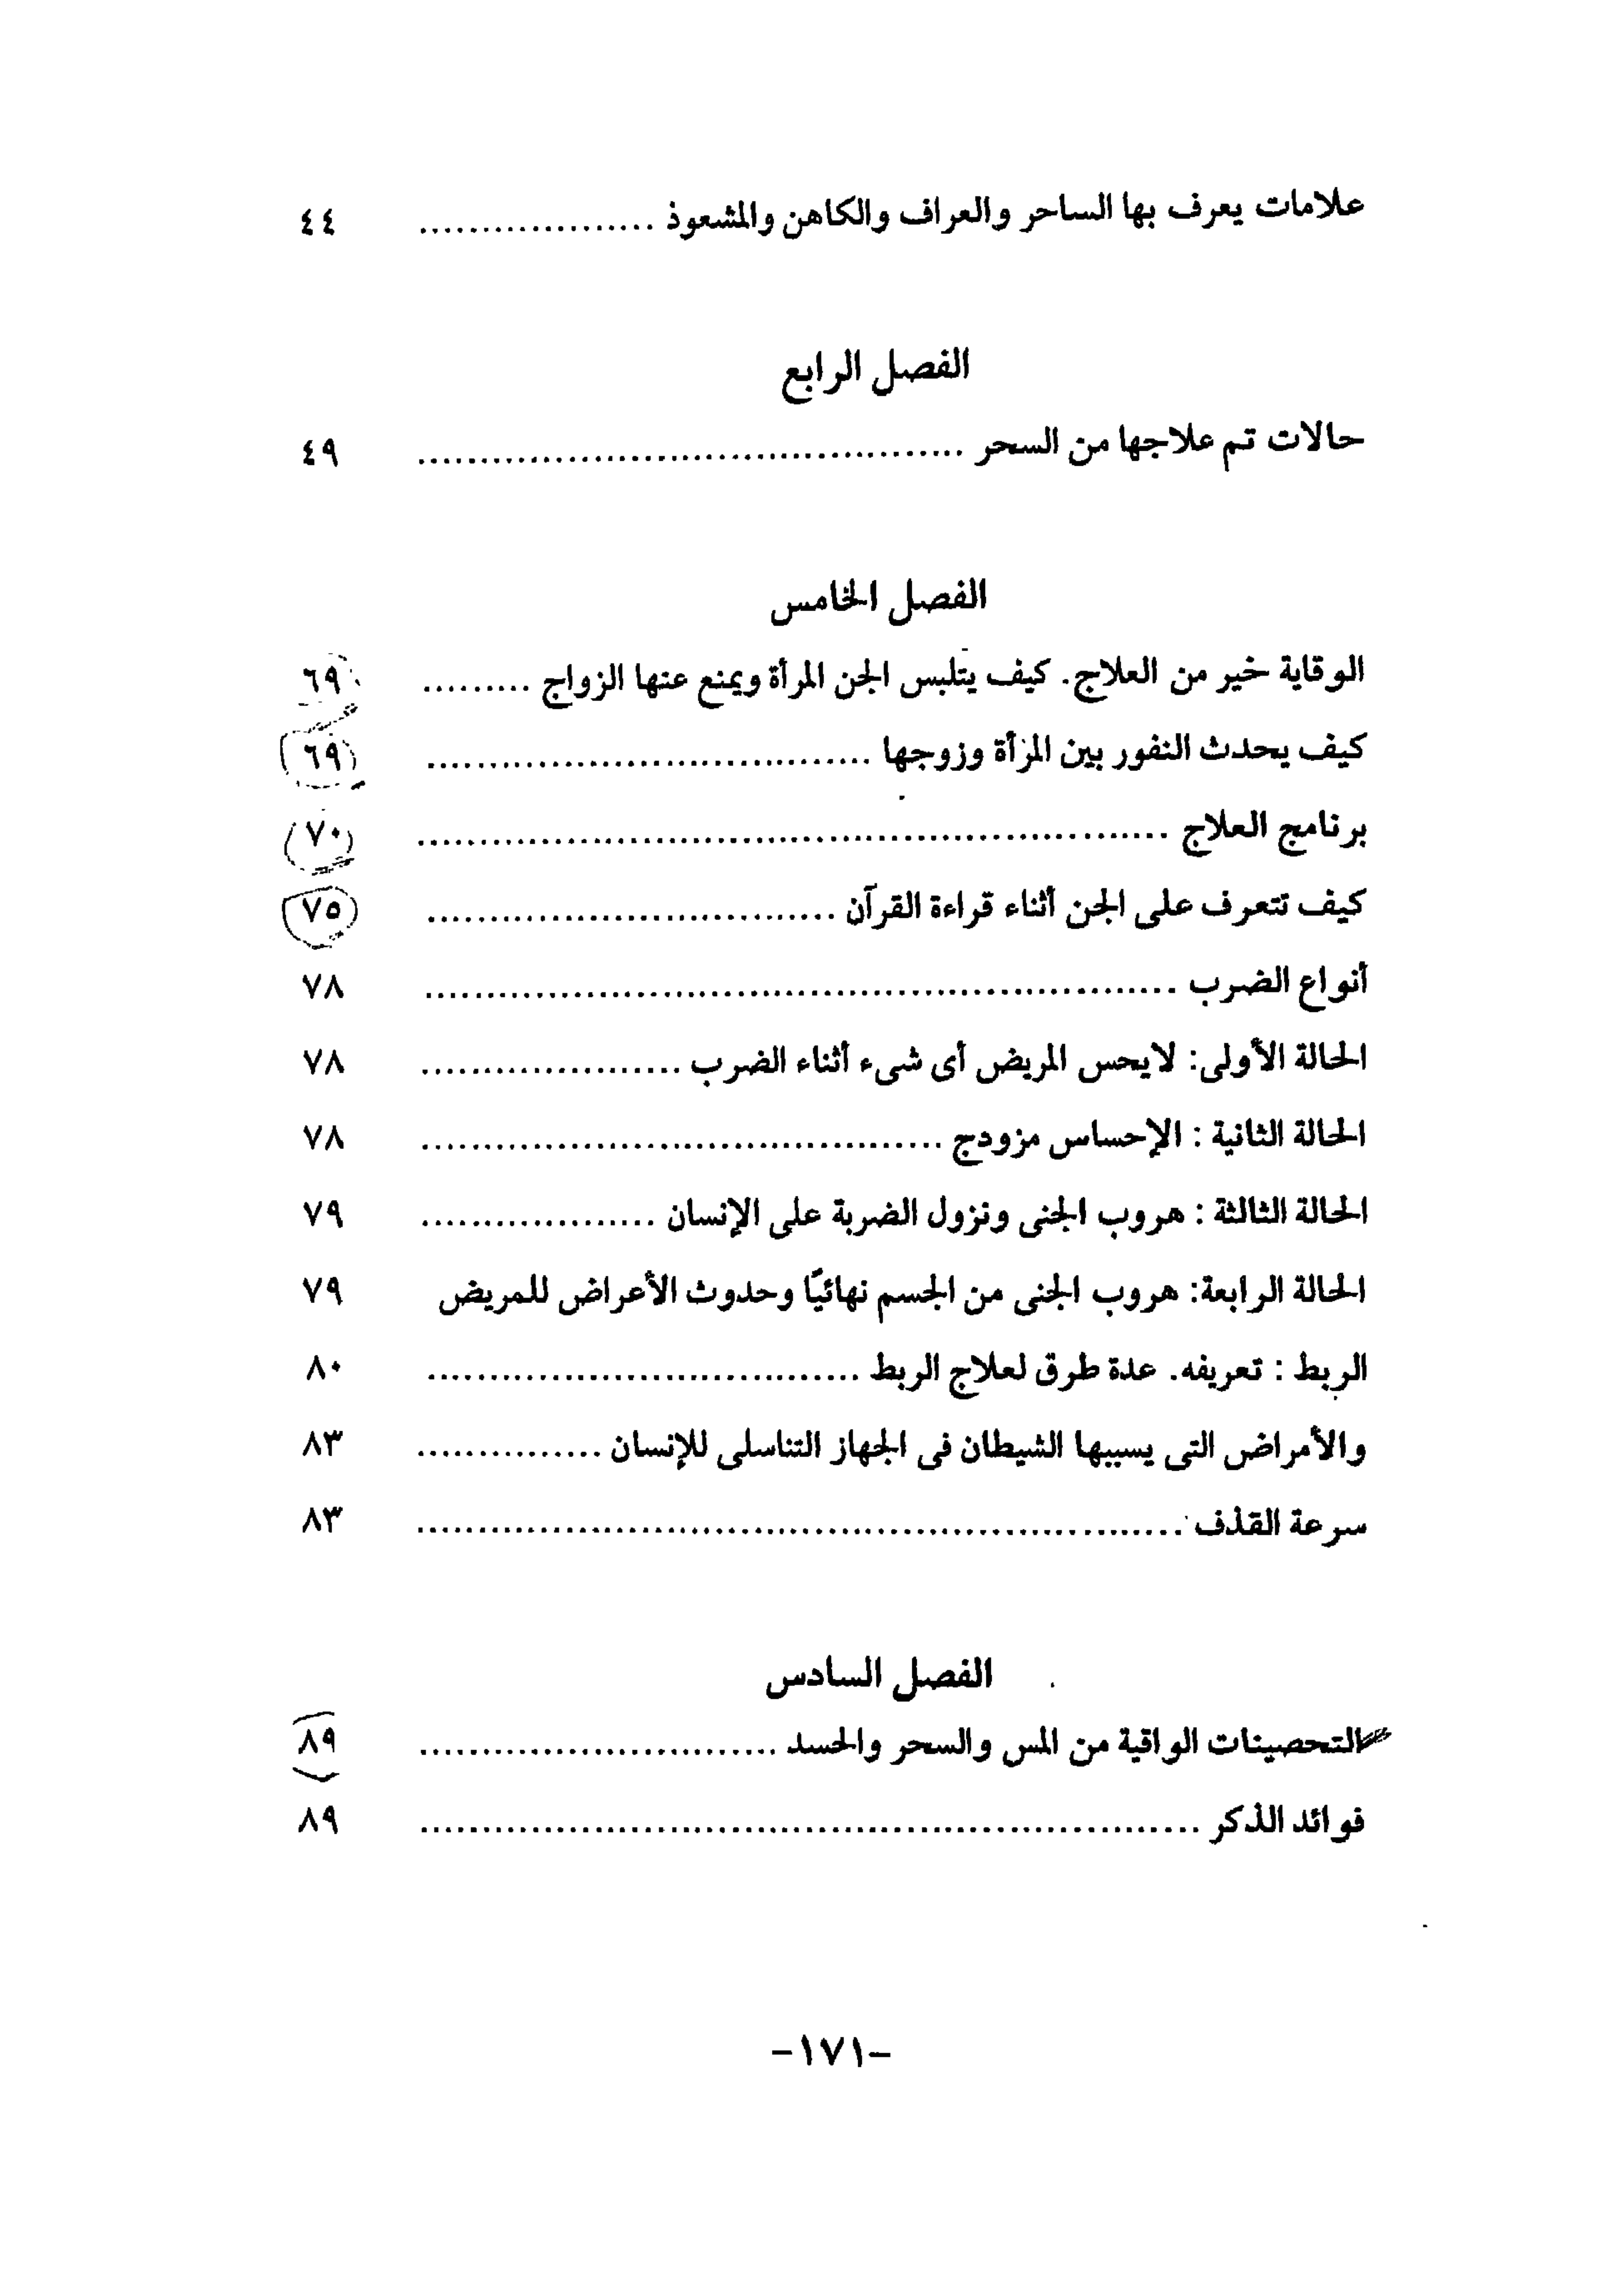 علامات يعرف بها الساحر والعراف والكاهن والمشعوذ ................... ٤٤
الفصل الرابع
حالات تم علاجها من السحر ............................................ ٤٩
الفصل الخامس
الوقاية خير من العلاج. كيف يتلبس الجن المرأة ويمنع عنها الزواج ......... ٦٩
كيف يحدث النفور بين المرأة وزوجها .................................... ٦٩
برنامج العلاج ............................................................. ٧٠
كيف تتعرف على الجن أثناء قراءة القرآن ................................. ٧٥
أنواع الضرب ............................................................. ٧٨
الحالة الأولى: لايحس المريض أى شىء أثناء الضرب ..................... ٧٨
الحالة الثانية : الإحساس مزودج .......................................... ٧٨
الحالة الثالثة : هروب الجنى ونزول الضربة على الإنسان ................... ٧٩
الحالة الرابعة: هروب الجنى من الجسم نهائيًا وحدوث الأعراض للمريض ٧٩
الربط : تعريفه. عدة طرق لعلاج الربط ................................... ٨٠
والأمراض التى يسببها الشيطان فى الجهاز التناسلى للإنسان ............... ٨٣
سرعة القذف .............................................................. ٨٣
الفصل السادس
التحصينات الواقية من المس والسحر والحسد ............................. ٨٩
فوائد الذكر ............................................................... ٨٩
-١٧١-